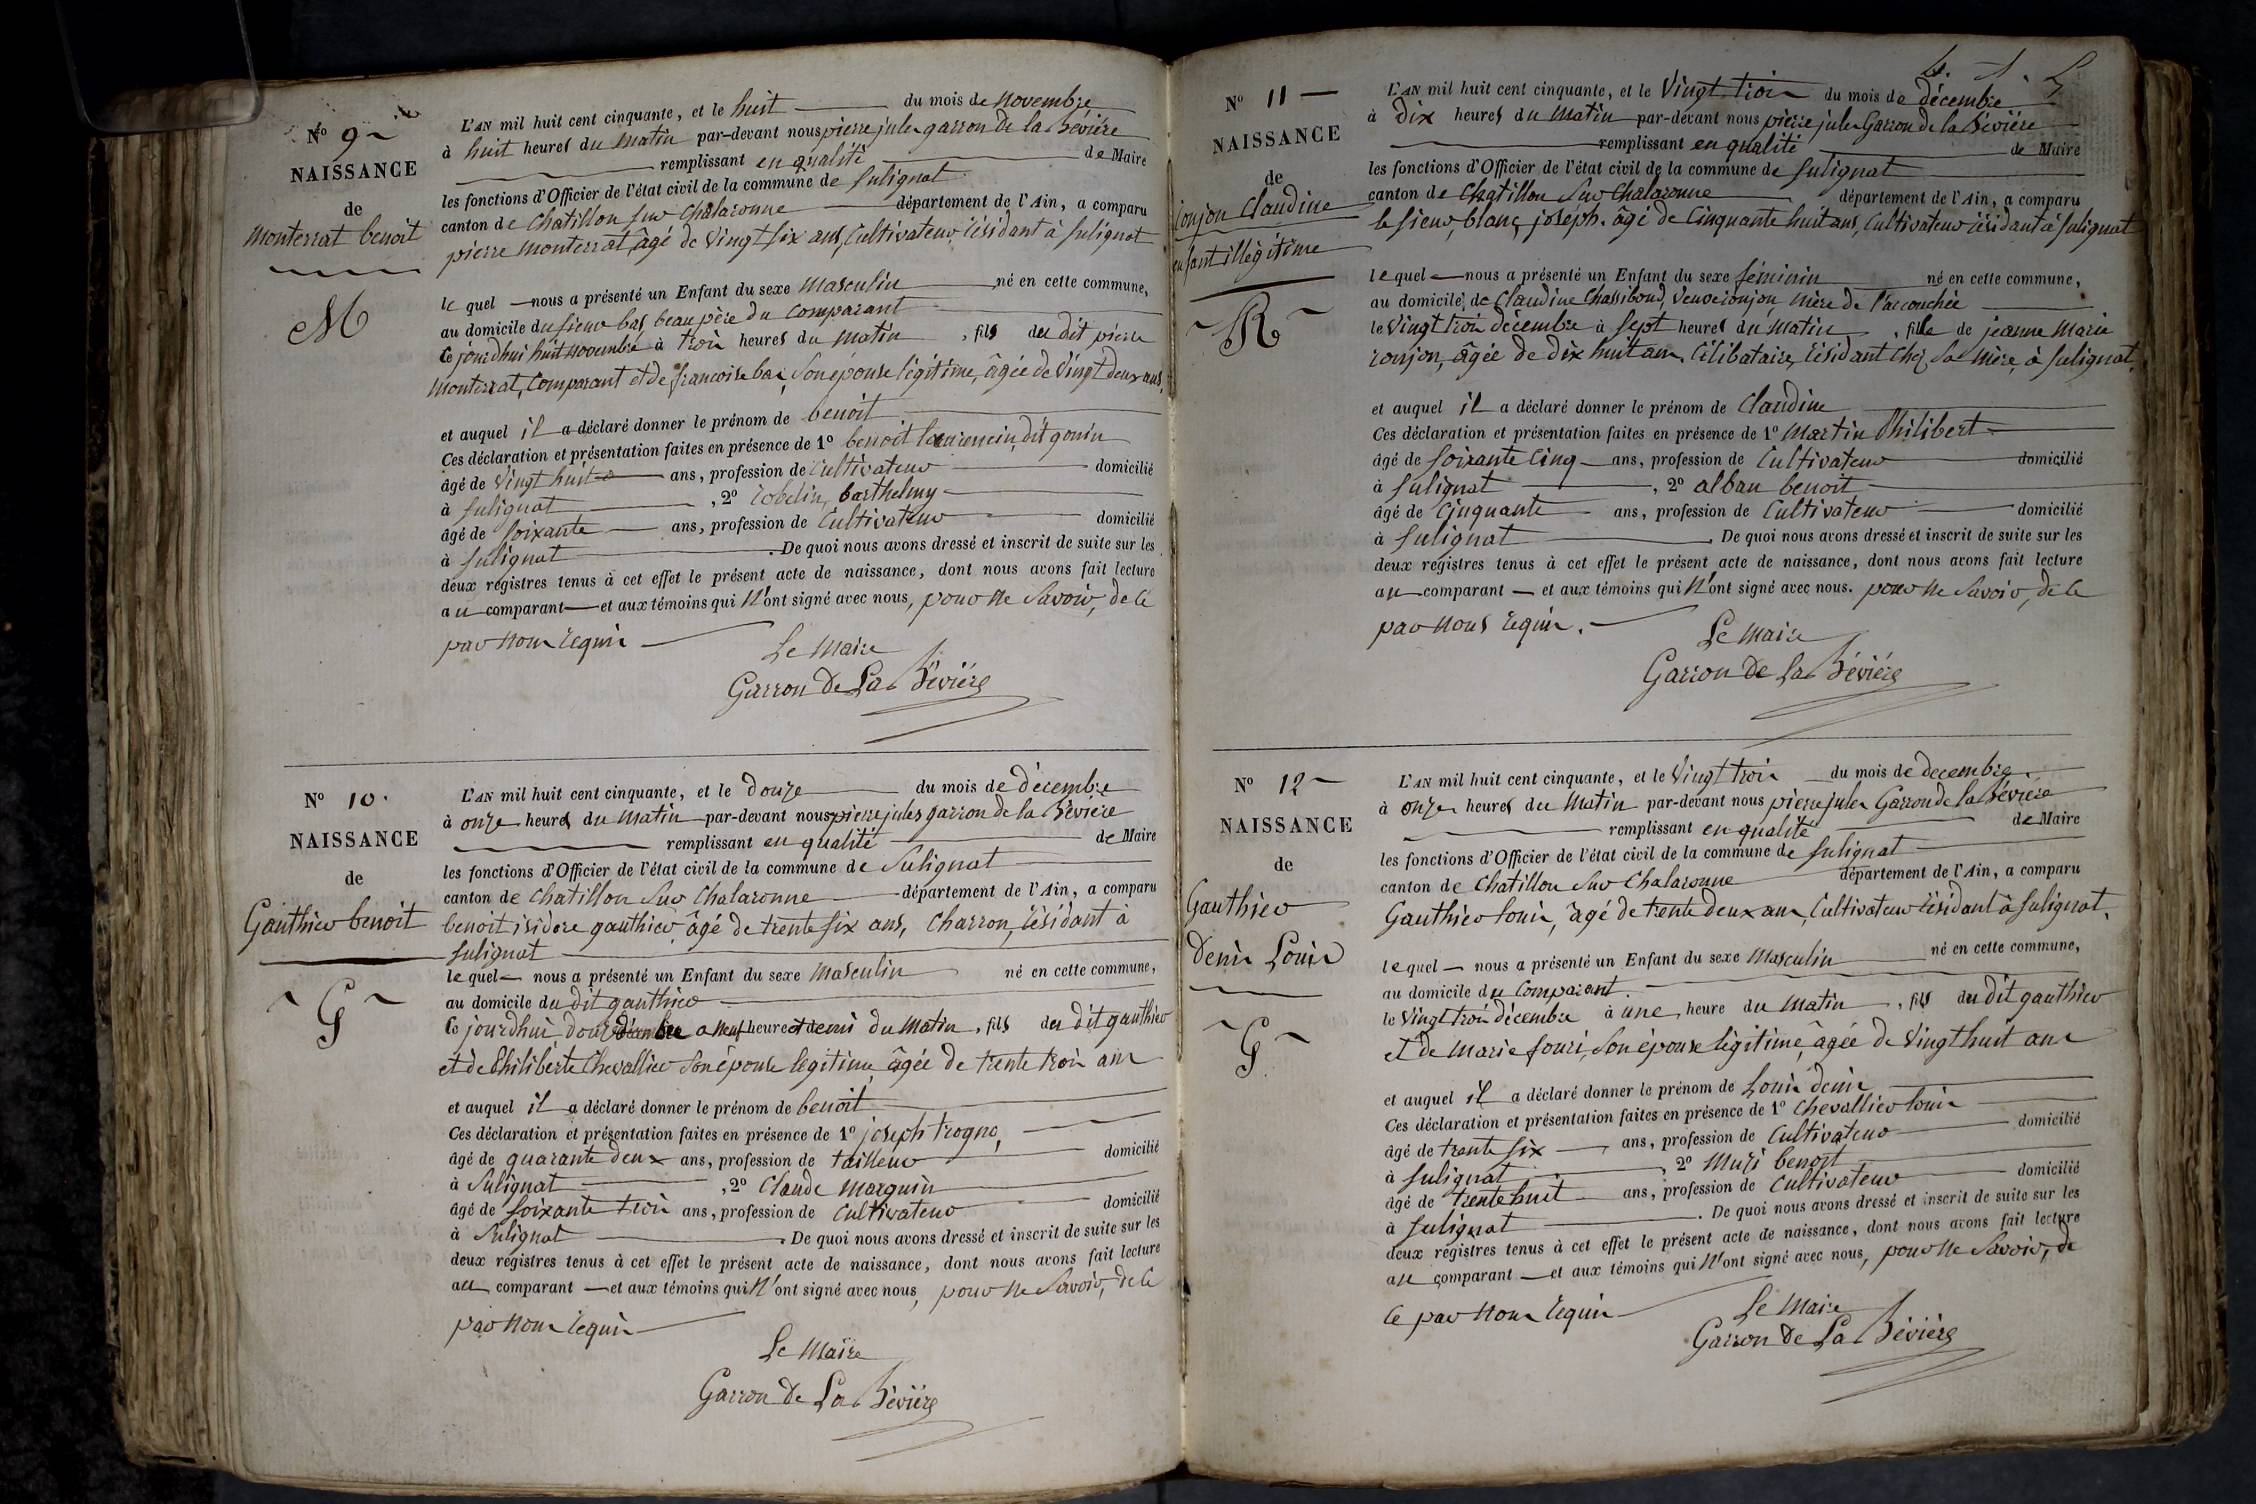 Nº 9
NAISSANCE
de
Monterrat benoit
M
L'AN mil huit cent cinquante, et le huit du mois de novembre
à huit heures du matin par-devant nous pierre jules garron de la Bévière
remplissant en qualité de Maire
les fonctions d'Officier de l'état civil de la commune de Sulignat
canton de Chatillon sur Chalaronne département de l'Ain, a comparu
pierre monterrat, âgé de vingt six ans, Cultivateur, résidant à Sulignat
lequel nous a présenté un Enfant du sexe masculin né en cette commune,
au domicile du sieur bas, beau père du comparant
ce jourdhui huit novembre à trois heures du matin, fils du dit pierre
monterrat, Comparant et de francoise bas, Son épouse légitime, âgée de Vingt deux ans,
et auquel il a déclaré donner le prénom de benoit
Ces déclaration et présentation faites en présence de 1º benoit dit gouin
âgé de vingt huit ans, profession de Cultivateur domicilié
à Sulignat, 2º robelin, barthelmy
âgé de soixante ans, profession de Cultivateur domicilié
à Sulignat. De quoi nous avons dressé et inscrit de suite sur les
deux registres tenus à cet effet le présent acte de naissance, dont nous avons fait lecture
au comparant et aux témoins qui n'ont signé avec nous, pour ne Savoir, de ce
par nous requis
Le Maire
Garron De La Bévière
Nº 10.
NAISSANCE
de
Gauthier benoit
G
L'AN mil huit cent cinquante, et le douze du mois de décembre
à onze heures du matin par-devant nous pierre jules garron de la Bévière
remplissant en qualité de Maire
les fonctions d'Officier de l'état civil de la commune de Sulignat
canton de Chatillon Sur Chalaronne département de l'Ain, a comparu
benoit isidore gauthier, âgé de trente six ans, Charron, résidant à
Sulignat
lequel nous a présenté un Enfant du sexe masculin né en cette commune,
au domicile du dit gauthier
Ce jourdhui douze décembre a neuf heures et demi du matin, fils du dit gauthier
et de Philiberte Chevallier Son épouse légitime, âgée de trente trois ans
et auquel il a déclaré donner le prénom de benoit
Ces déclaration et présentation faites en présence de 1º joseph trogno,
âgé de quarante deux ans, profession de tailleur domicilié
à Sulignat, 2º Claude marquis
âgé de soixante trois ans, profession de Cultivateur domicilié
à Sulignat. De quoi nous avons dressé et inscrit de suite sur les
deux registres tenus à cet effet le présent acte de naissance, dont nous avons fait lecture
au comparant et aux témoins qui n'ont signé avec nous, pour ne Savoir, de ce
par nous requis
Le Maire
Garron De La Bévière
Nº 11
NAISSANCE
de
ronjon Claudine
enfant illégitime
R
L'AN mil huit cent cinquante, et le Vingt trois du mois de décembre
à dix heures du matin par-devant nous pierre jules Garron de la Bévière
remplissant en qualité de Maire
les fonctions d'Officier de l'état civil de la commune de Sulignat
canton de Chatillon Sur Chalaronne département de l'Ain, a comparu
le Sieur, blanc, joseph. âgé de Cinquante huit ans, Cultivateur résidant à Sulignat
lequel nous a présenté un Enfant du sexe féminin né en cette commune,
au domicile de Claudine Chassiboud, veuve ronjon, mère de l'accouchée
le Vingt trois décembre à sept heures du matin, fille de jeanne Marie
ronjon, âgée de dix huit ans, Célibataire, résidant chez Sa mère, à Sulignat,
et auquel il a déclaré donner le prénom de Claudine
Ces déclaration et présentation faites en présence de 1º Martin Philibert
âgé de soixante Cinq ans, profession de Cultivateur domicilié
à Sulignat, 2º alban benoit
âgé de Cinquante ans, profession de Cultivateur domicilié
à Sulignat. De quoi nous avons dressé et inscrit de suite sur les
deux registres tenus à cet effet le présent acte de naissance, dont nous avons fait lecture
au comparant et aux témoins qui n'ont signé avec nous. pour ne Savoir, de ce
par nous requis.
Le Maire
Garron De La Bévière
Nº 12
NAISSANCE
de
Gauthier
Denis Louis
G
L'AN mil huit cent cinquante, et le Vingt trois du mois de decembre
à onze heures du matin par-devant nous pierre jules Garron de la Bévière
remplissant en qualité de Maire
les fonctions d'Officier de l'état civil de la commune de Sulignat
canton de Chatillon Sur Chalaronne département de l'Ain, a comparu
Gauthier louis, âgé de trente deux ans, Cultivateur résidant à Sulignat,
lequel nous a présenté un Enfant du sexe masculin né en cette commune,
au domicile du Comparant.
le Vingt trois décembre à une heure du matin, fils du dit gauthier
et de Marie fouri, Son épouse légitime, âgée de Vingt huit ans
et auquel il a déclaré donner le prénom de Louis denis
Ces déclaration et présentation faites en présence de 1º Chevallier louis
âgé de trente six ans, profession de Cultivateur domicilié
à Sulignat, 2º Muzi benoit
âgé de trente huit ans, profession de Cultivateur domicilié
à Sulignat. De quoi nous avons dressé et inscrit de suite sur les
deux registres tenus à cet effet le présent acte de naissance, dont nous avons fait lecture
au comparant et aux témoins qui n'ont signé avec nous, pour ne Savoir, de
ce par nous requis
Le Maire
Garron De La Bévière